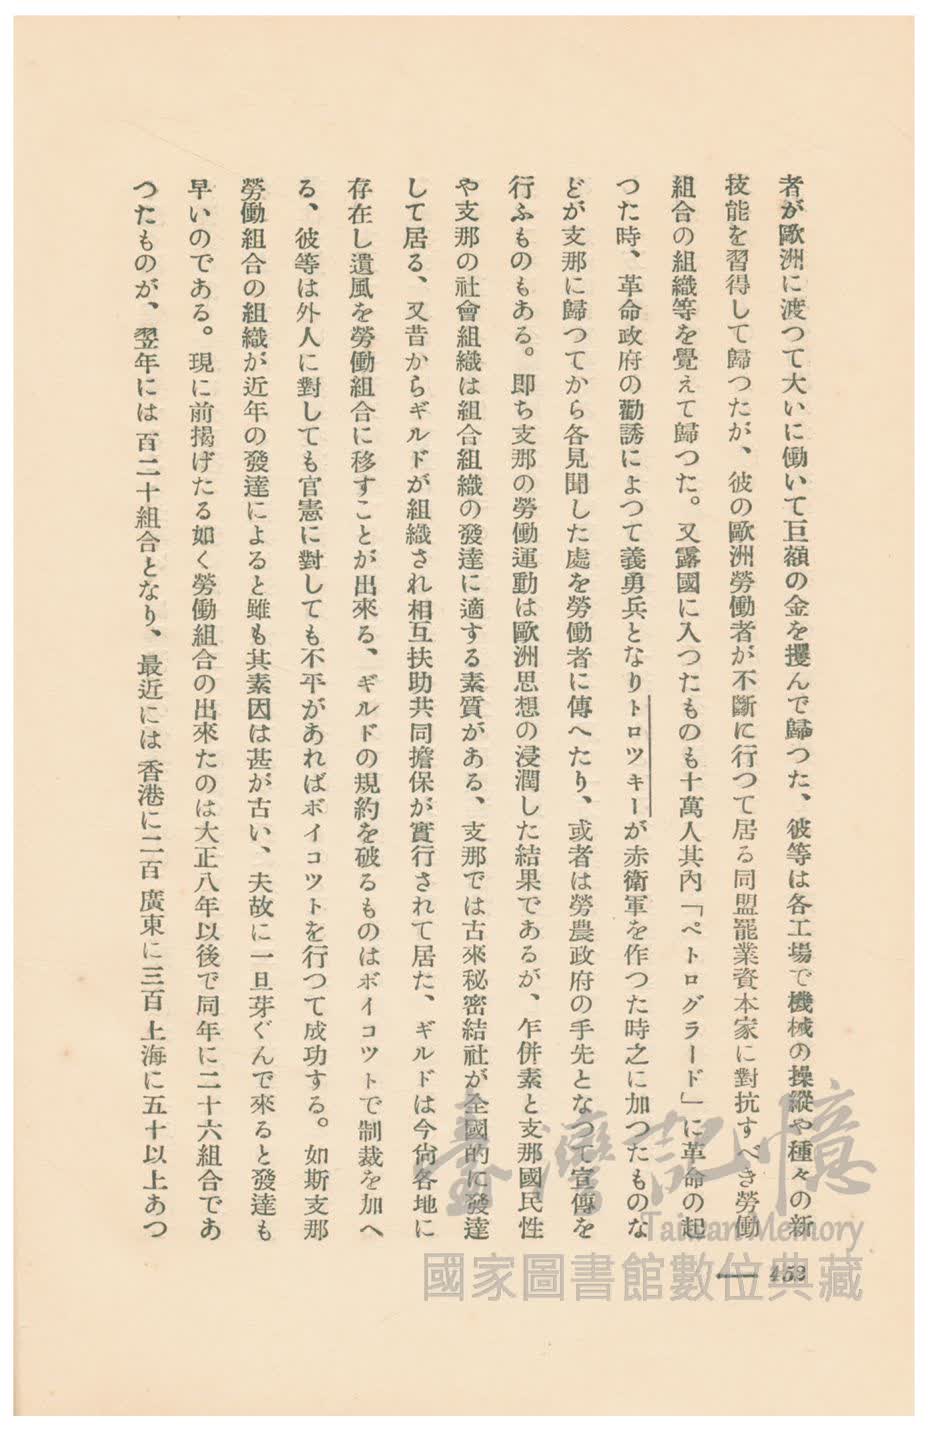 者が歐洲に渡つて大いに働いて巨額の金を攫んで歸つた、彼等は各工場で機械の操縱や種々の新
技能を習得して歸つたが、彼の歐洲勞働者が不斷に行つて居る同盟罷業資本家に對抗すべき勞働
組合の組織等を覺えて歸つた。又露國に入つたものも十萬人其內「ペトログラード」に革命の起
つた時、革命政府の勸誘によつて義勇兵となりトロツキーが赤衛軍を作つた時之に加つたものな
どが支那に歸つてから各見聞した處を勞働者に傳へたり、或者は勞農政府の手先となつて宣傳を
行ふものもある。即ち支那の勞働運動は歐洲思想の浸潤した結果であるが、乍併素と支那國民性
や支那の社會組織は組合組織の發達に適する素質がある、支那では古來秘密結社が全國的に發達
して居る、又昔からギルドが組織され相互扶助共同擔保が實行されて居た、ギルドは今尙各地に
存在し遺風を勞働組合に移すことが出來る、ギルドの規約を破るものはボイコツトで制裁を加へ
る、彼等は外人に對しても官憲に對しても不平があればボイコツトを行つて成功する。如斯支那
勞働組合の組織が近年の發達によると雖も其素因は甚が古い、夫故に一旦芽ぐんで來ると發達も
早いのである。現に前揭げたる如く勞働組合の出來たのは大正八年以後で同年に二十六組合であ
つたものが、翌年には百二十組合となり、最近には香港に二百廣東に三百上海に五十以上あつ
453
臺灣記憶
Taiwan Memory
國家圖書館數位典藏